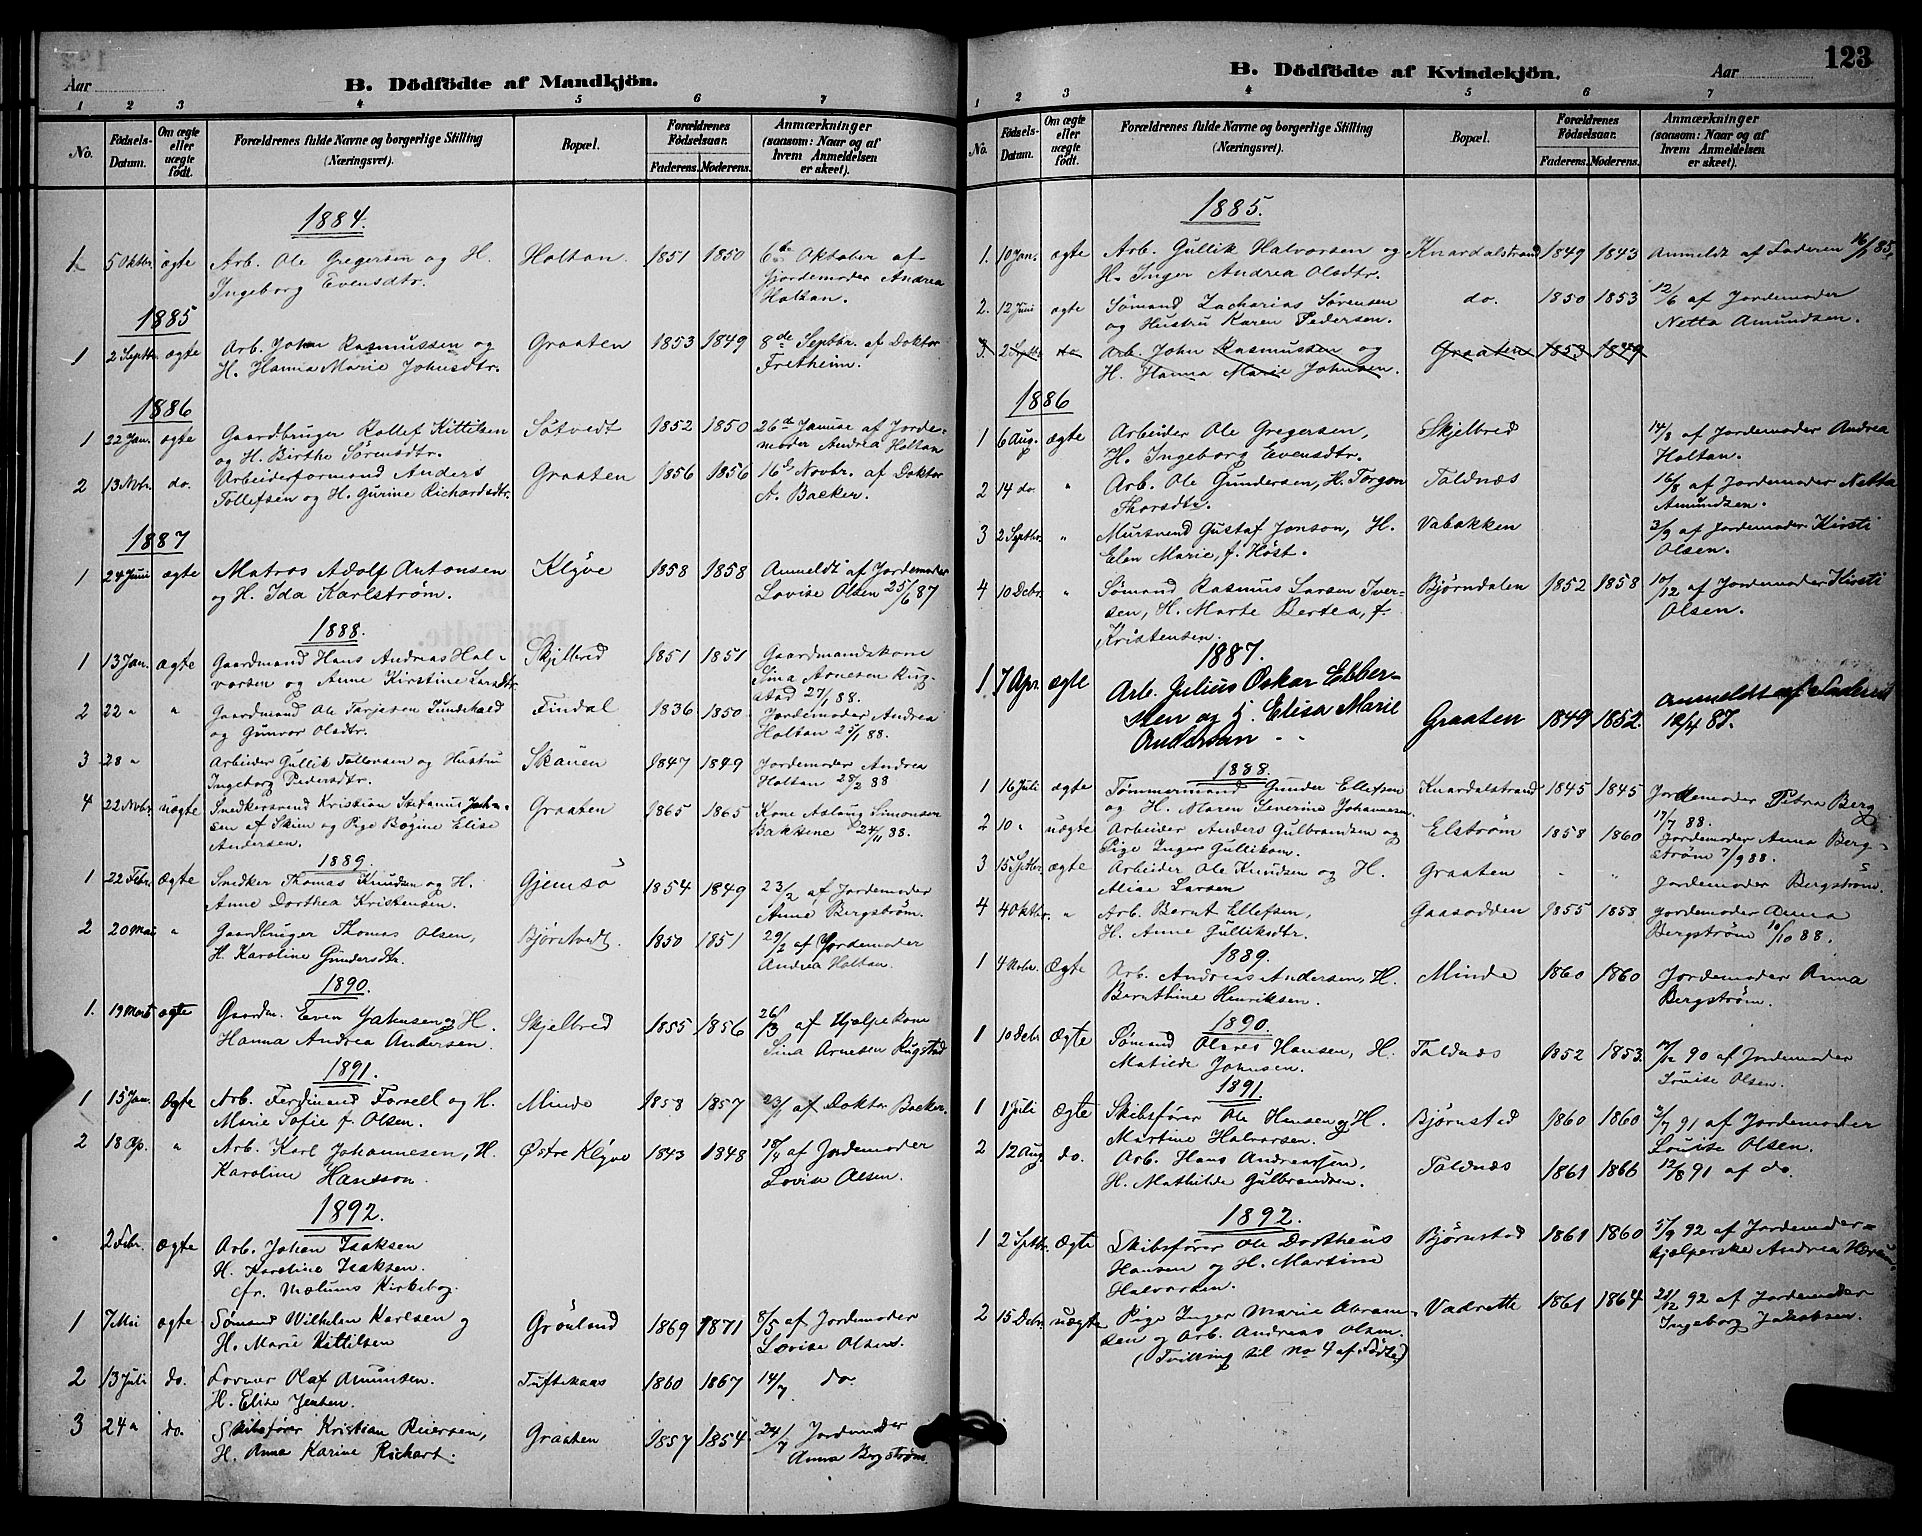 Aar
B. Dödfödte af Mandkjön.
1 2 3 4 5 6 7
No.
Födsels-
Datum.
Om ægte
eller
uægte
födt.
Forældrenes fulde Navne og borgerlige Stilling
(Næringsvei).
Bopæl.
Forældrenes
Födselsaar.
Faderens. Moderens.
Anmærkninger
(saasom: Naar og af
hvem Anmeldelsen
er skeet).
1884.
1 5 Oktbr. ægte Arb. Ole Gregersen og H. Holtan. 1851 1850 6te Oktober af
Ingeborg Evensdtr. Gjordemoder Andrea
Holtan.
1885
1 2 Septbr. ægte Arb. John Rasmussen og Graaten 1853 1849 8de Septbr. af Doktor
H. Hanna Marie Johnsdtr. Fretheim.
1886
1 22 Jan. ægte Gaardbruger Rollef Kittilsen Sötvedt 1852 1850 26de Januar af Jorde-
og H. Birthe Sörensdtr. moder Andrea Holtan
2 13 Nvbr. do. Arbeiderformand Anders Graaten 1856 1856 16de Novbr. af Doktor
Tollefsen og H. Gurine Richardsdtr. A. Backer.
1887
1 24 Juni ægte Matros Adolf Antonsen Klyve 1858 1858 Anmeldt af Jordemoder
og H. Ida Karlström. Lovise Olsen 25/6 87
1888.
1 13 Jan. ægte Gaardmand Hans Andreas Hal- Skjelbred 1851 1851 Gaardmandskone
vorsen og Anne Kirstine Larsdtr Sina Arnesen Rug-
stad 27/1 88.
2 22 " " Gaardmand Ole Tarjesen Findal 1836 1850 Jordemoder Andrea
og Gunvor Olsdtr. Holtan 25/1 88.
3 28 " Arbeider Gullik Tollefsen og Hustru Skauen 1847 1849 Jordemoder Andrea
Ingeborg Pedersdtr. Holtan 28/2 88
4 22 Nvbr. uægte Snedkersvend Kristian Stefanus Joh- Graaten 1865 1865 Kone Aslaug Simonsen
sen af Skien og Pige Bögine Elise Bakkene 24/11 88.
Andersen.
1889.
1 22 Febr. Ægte Snedker Thomas Knudsen og H. Gjemsö 1854 1849 23/2 af Jordemoder
Anne Dorthea Kristensen. Anne Bergström.
2 20 Mai " Gaardbruger Thomas Olsen, Björstvedt. 1850 1851 29/2 af Jordemoder
H. Karoline Gundersdtr. Andrea Holtan.
1890.
1. 19 Marts ægte Gaardm. Even Johnsen og H. Skjelbred 1855 1856 26/3 af Hjælpekone
Hanna Andrea Andersen. Sina Arnesen Rugstad
1891.
1 15 Jan. Ægte Arb. Ferdinand Forsell og H. Minde 1858 1857 23/1 af Doktor Backer.
Marie Sofie f. Olsen.
2 18 Ap. " Arb. Karl Johannesen, H. Østre Klyve 1843 1848 18/4 af Jordemoder
Karoline Hansson. Lovise Olsen.
1892.
2 Febr. ægte Arb. Johan Isaksen
H. Karoline Isaksen.
fr. Mælums Kirkebog.
1 7 Mai ægte Sömand Wilhelm Karlsen og Grönlund 1869 1871 8/5 af Jordemoder
H. Marie Kittilsen Lovise Olsen.
2 13 Juli do. Olaf Amundsen. Tuftekaas 1860 1867 14/7 do.
H. Elise Jensen.
3 24 " do. Skibsfører Kristian Reiersen, Graaten 1857 1854. 24/7 Jordemoder
H. Anna Karine Rickart. Anna Bergström.
B. Dödfödte af Kvindekjön.
Aar
123
1 2 3 4 5 6 7
No.
Födsels-
Datum.
Om ægte
eller
uægte
födt.
Forældrenes fulde Navne og borgerlige Stilling
(Næringsvei).
Bopæl.
Forældrenes
Födselsaar.
Faderens. Moderens.
Anmærkninger
(saasom: Naar og af
hvem Anmeldelsen
er skeet).
1885.
1. 10 Jan. ægte Arb. Gullik Halvorsen og Knardalstrand 1849 1843 Anmeldt af Faderen 16/1 85,
H. Inger Andrea Olsdtr.
2. 12 Juni ægte Sömand Zacharias Sörensen do. 1850 1853 12/6 af Jordemoder
og Hustru Karen Pedersen. Netta Amundsen.
3. 2 Septbr. do Arb. John Rasmussen og Graaten 1853 1849
H. Hanna Marie Johnsen.
1886
1 6 Aug. ægte Arbeider Ole Gregersen, Skjelbred 14/8 af Jordemoder Andrea
H. Ingeborg Evensdtr. Holtan.
2 14 do. " Arb. Ole Gundersen, H. Torgon Toldnæs 16/8 af Jordemoder Netta
Thorsdtr. Amundsen.
3 2 Septbr. " Mursvend Gustaf Jonson, H. Vabakken 3/9 af Jordemoder Kirsti
Elen Marie, f. Höst. Olsen.
4 10 Debr. " Sömand Rasmus Larsen Iver- Björndalen 1852 1858 10/12 af Jordemoder Kirsti
sen, H. Marte Bertea, f. Olsen.
Kristensen.
1887.
1. 7 Apr. ægte Arb. Julius Oskar Ebber-
sten og H. Elisa Marie Graaten 1849 1852. Anmeldt af Faderen
Andersen 12/4 87.
1888.
1 16 Juli ægte Tömmermand Gunder Ellefsen Knardalstrand 1845 1845 Jordemoder Petra Berg
og H. Maren Severine Johannesen 17/7 88.
2 10 " uægte Arbeider Anders Gulbrandsen og Elström 1858 1860 Jordemoder Anna Berg-
Pige Inger Gulliksen. ström 7/9 88.
3 15 Sptbr. ægte Arbeider Ole Knudsen og H. Graaten " " Jordemoder Bergström.
Alise Larsen
4 4 Oktbr. " Arb. Bernt Ellefsen, Gaasodden 1855 1858 Jordemoder Anna
H. Anne Gulliksdtr. Bergström 10/10 88.
1889.
1 4 Novbr. Ægte Arb. Andreas Andersen, H. Minde 1860 1860 Jordemoder Anna
Bernthine Henriksen. Bergström.
1890.
1 10 Debr Ægte Sömand Olaves Hansen, H. Toldnæs 1852 1853. 17/12 90 af Jordemoder
Matilde Johnsen. Louise Olsen.
1891.
1 1 Juli Ægte Skibsfører Ole Hansen og H. Björnstad 1860 1860 2/7 91 af Jordemoder
Martine Halvorsen. Louise Olsen.
2 12 Aug. do. Arb. Hans Andreassen, Toldnæs 1861 1866 12/8 91 af do.
H. Mathilde Gulbrandsen.
1892.
1 2 Sptbr. Ægte Skibsfører Ole Dortheus Björnstad 1861 1860 5/9 92 af Jordemoder-
Hansen og H. Martine hjælperske Andrea
Halvorsen.
2 15 Debr. uægte Pige Inger Marie Abram- Vadrette 1861 1864 21/12 92 af Jordemoder
sen og Arb. Andreas Olsen. Ingeborg Jakobsen.
(Tvilling til No 4 af Födte)